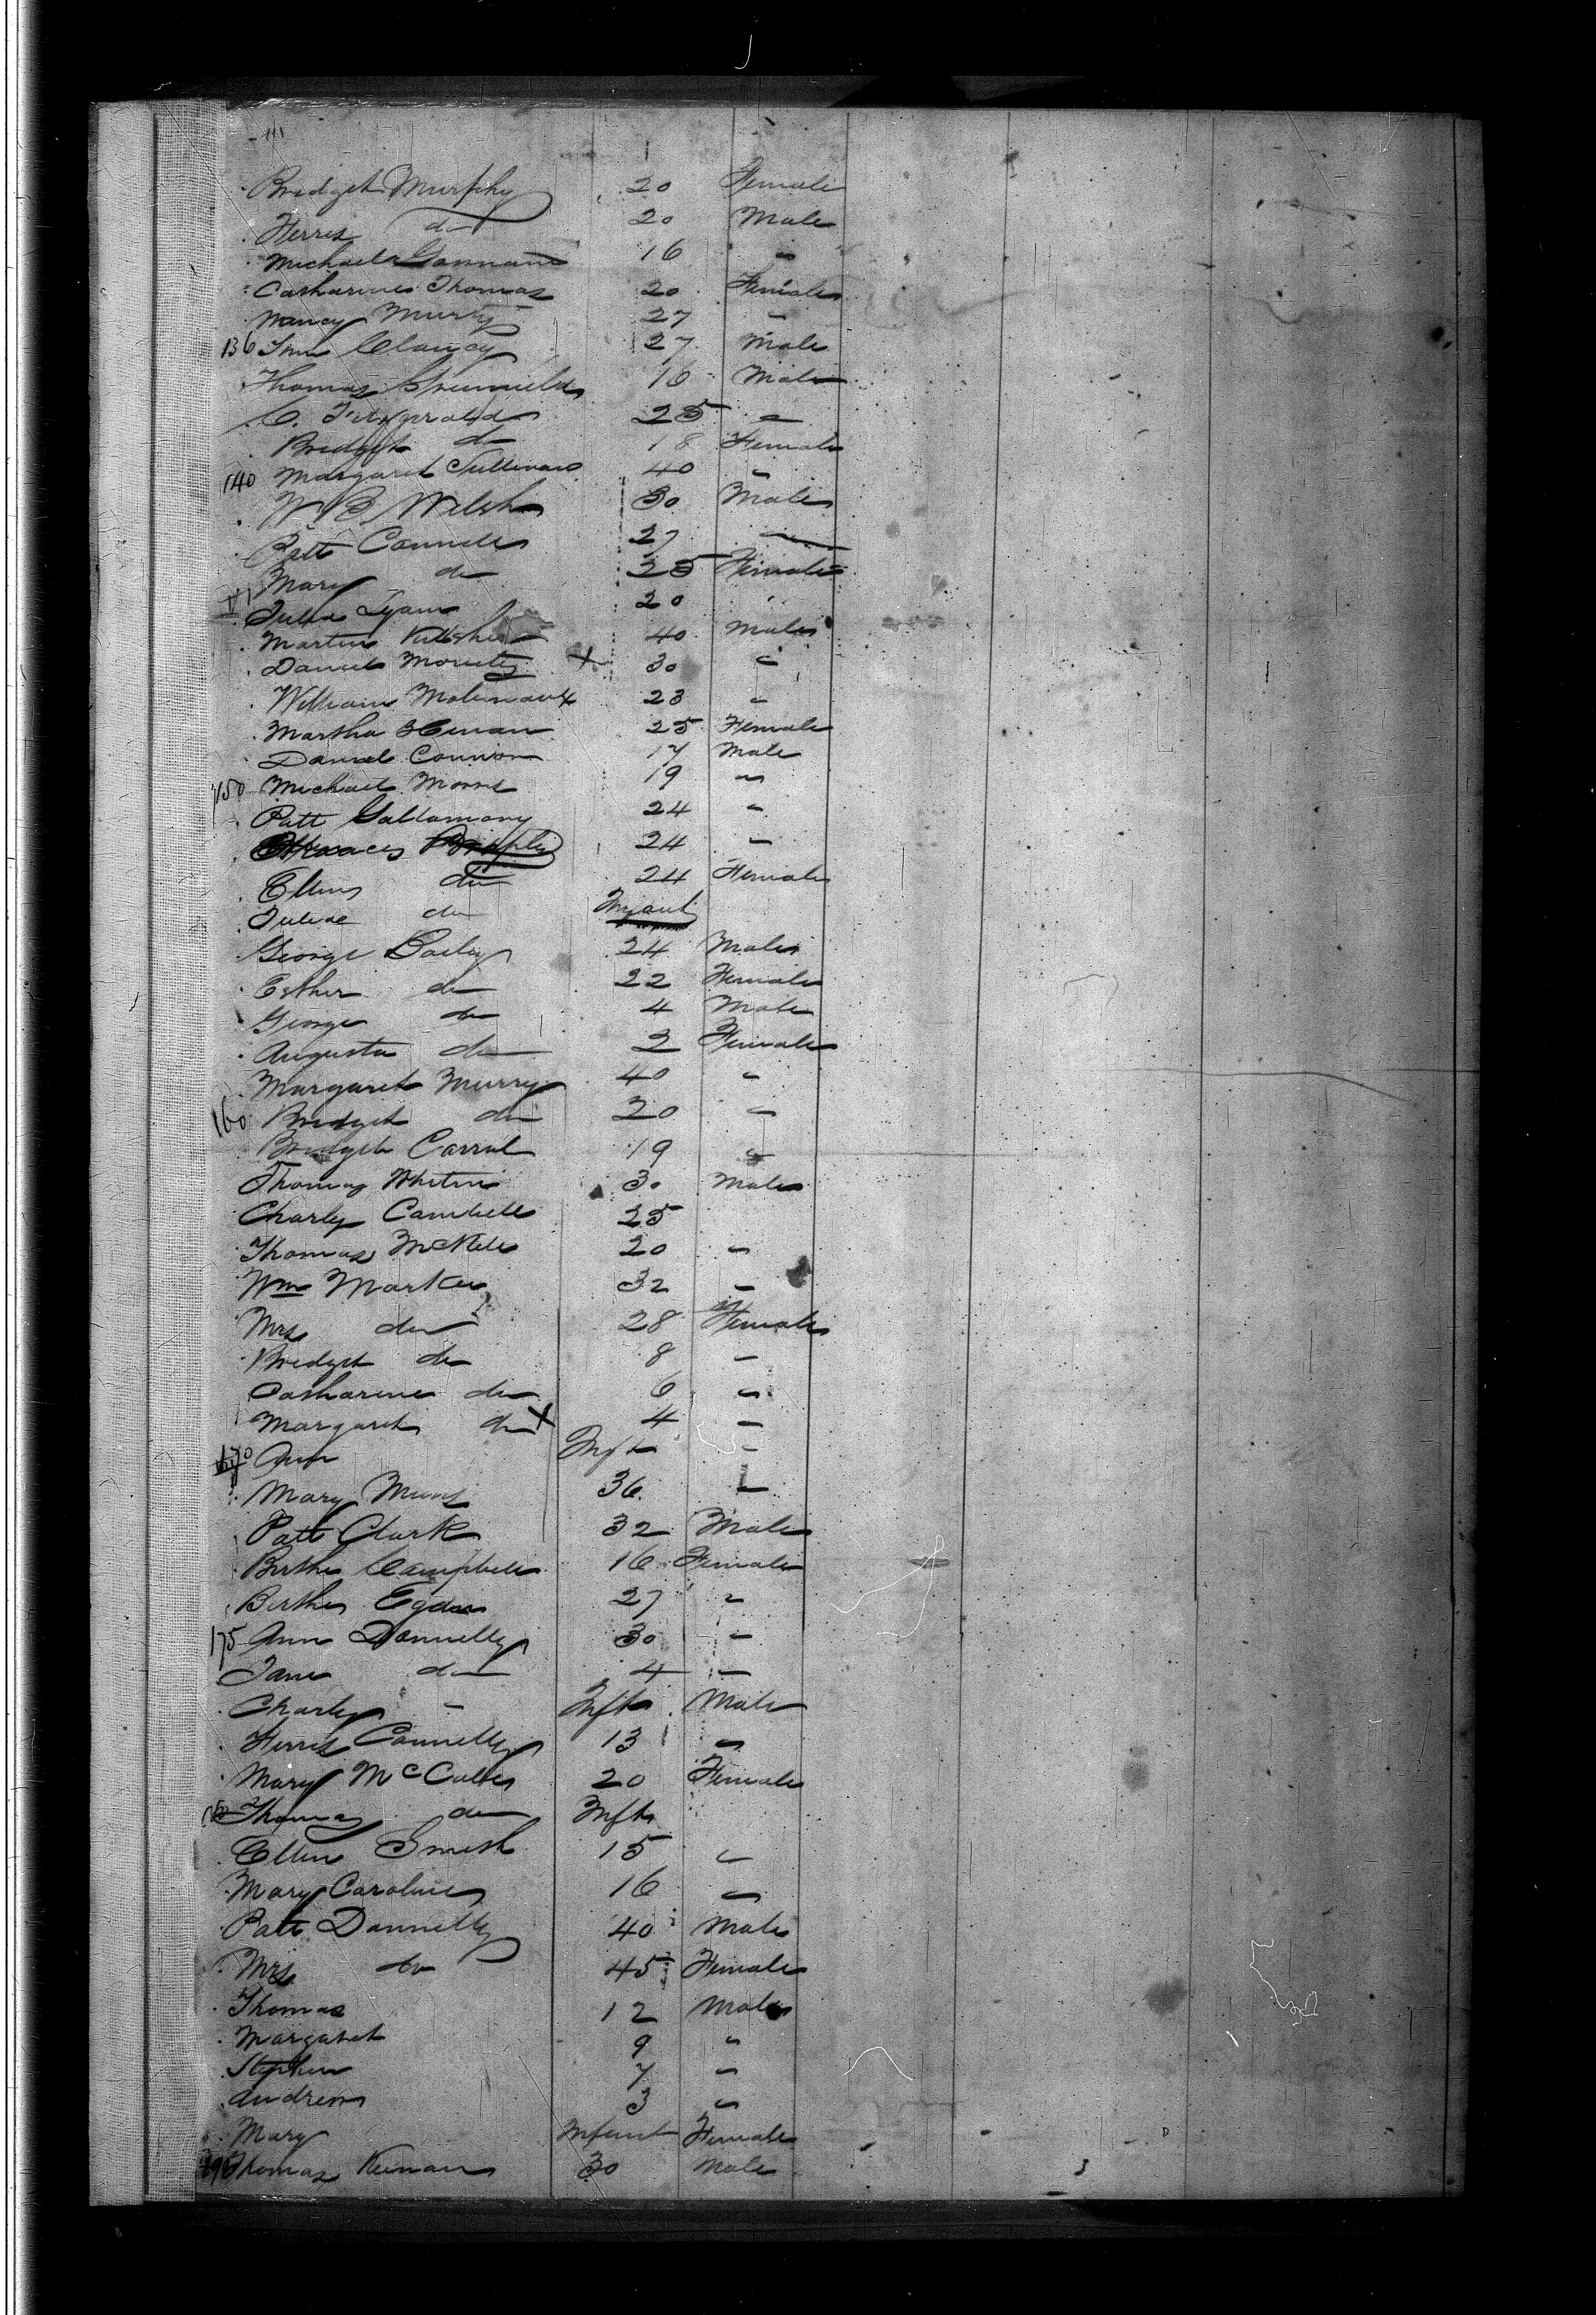 Bridget Murphy 20 Female
Ferris do 20 Male
Michael Gannam 16 "
Catharine Thomas 20 Female
Nancy Murty 27 "
136 Clancy 27 Male
Thomas 16 Male
C. Fitzgerald 25 "
Bridget do 18 Female
140 Margaret Sullivan 40 "
W B Welsh 30 Male
Patt Connell 27 "
Mary do 25 Female
Julia Lyan 20 "
Martin 40 Male
Daniel Moriety X 30 "
William Molineaux 23 "
Martha 25 Female
Daniel Connor 17 Male
150 Michael Moore 19 "
Patt 24 "
24 "
Ellen do 24 Female
Julia do Infant
George Baily 24 Male
Esther do 22 Female
George do 4 Male
Augusta do 2 Female
Margaret Murry 40 "
160 Bridget do 20 "
Bridget Carrol 19 "
Thomas 30 Male
Charly Cambell 25
Thomas 20 "
Wm Markee 32 "
Mrs do 28 Female
Bridget do 8 "
Catharine do 6 "
Margaret do X 4 "
170 Ann Inft "
Mary 36 "
Patt Clark 32 Male
Campbell 16 Female
Egan 27 "
175 Ann Donnelly 30 "
Jane do 4 "
Charly " Inft Male
Ferris Connelly 13 "
Mary McCabe 20 Female
180 Thomas do Inft
Ellen Smith 15 "
Mary Caroline 16 "
Patt Donnelly 40 Male
Mrs do 45 Female
Thomas 12 Male
Margaret 9 "
Stephen 7 "
Andrew 3 "
Mary Infant Female
190 Thomas Keinan 30 Male